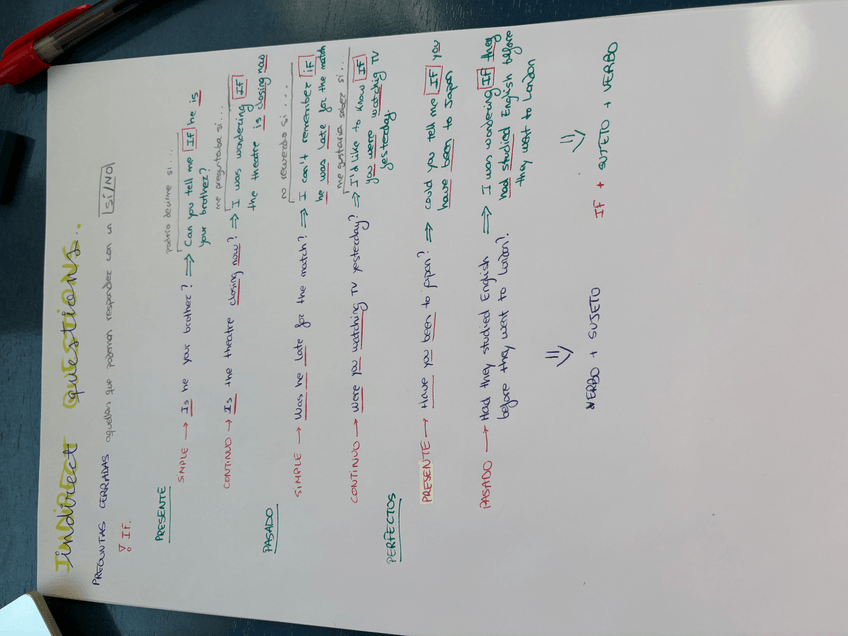 INDIRECT QUESTIONS..
indirect questions..
PREGUNTAS CERRADAS aquellas que podemos responder con un SÍ/NO
! IF.
PRESENTE
podría decirme si...
SIMPLE → Is he your brother? ⇒ Can you tell me IF he is
your brother?
me preguntaba si...
CONTINUO → Is the theatre closing now? ⇒ I was wondering IF
the theatre is closing now
PASADO
no recuerdo si....
SIMPLE → Was he late for the match? ⇒ I can't remember if
he was late for the match
me gustaría saber si...
CONTINUO → Were you watching TV yesterday? ⇒ I'd like to know IF
you were watching TV
yesterday.
PERFECTOS
PRESENTE → Have you been to japan? ⇒ could you tell me IF you
have been to Japan
PASADO → Had they studied English
before they went to London?
⇒ I was wondering IF they
had studied English before
they went to London
VERBO + SUJETO
IF + SUJETO + VERBO